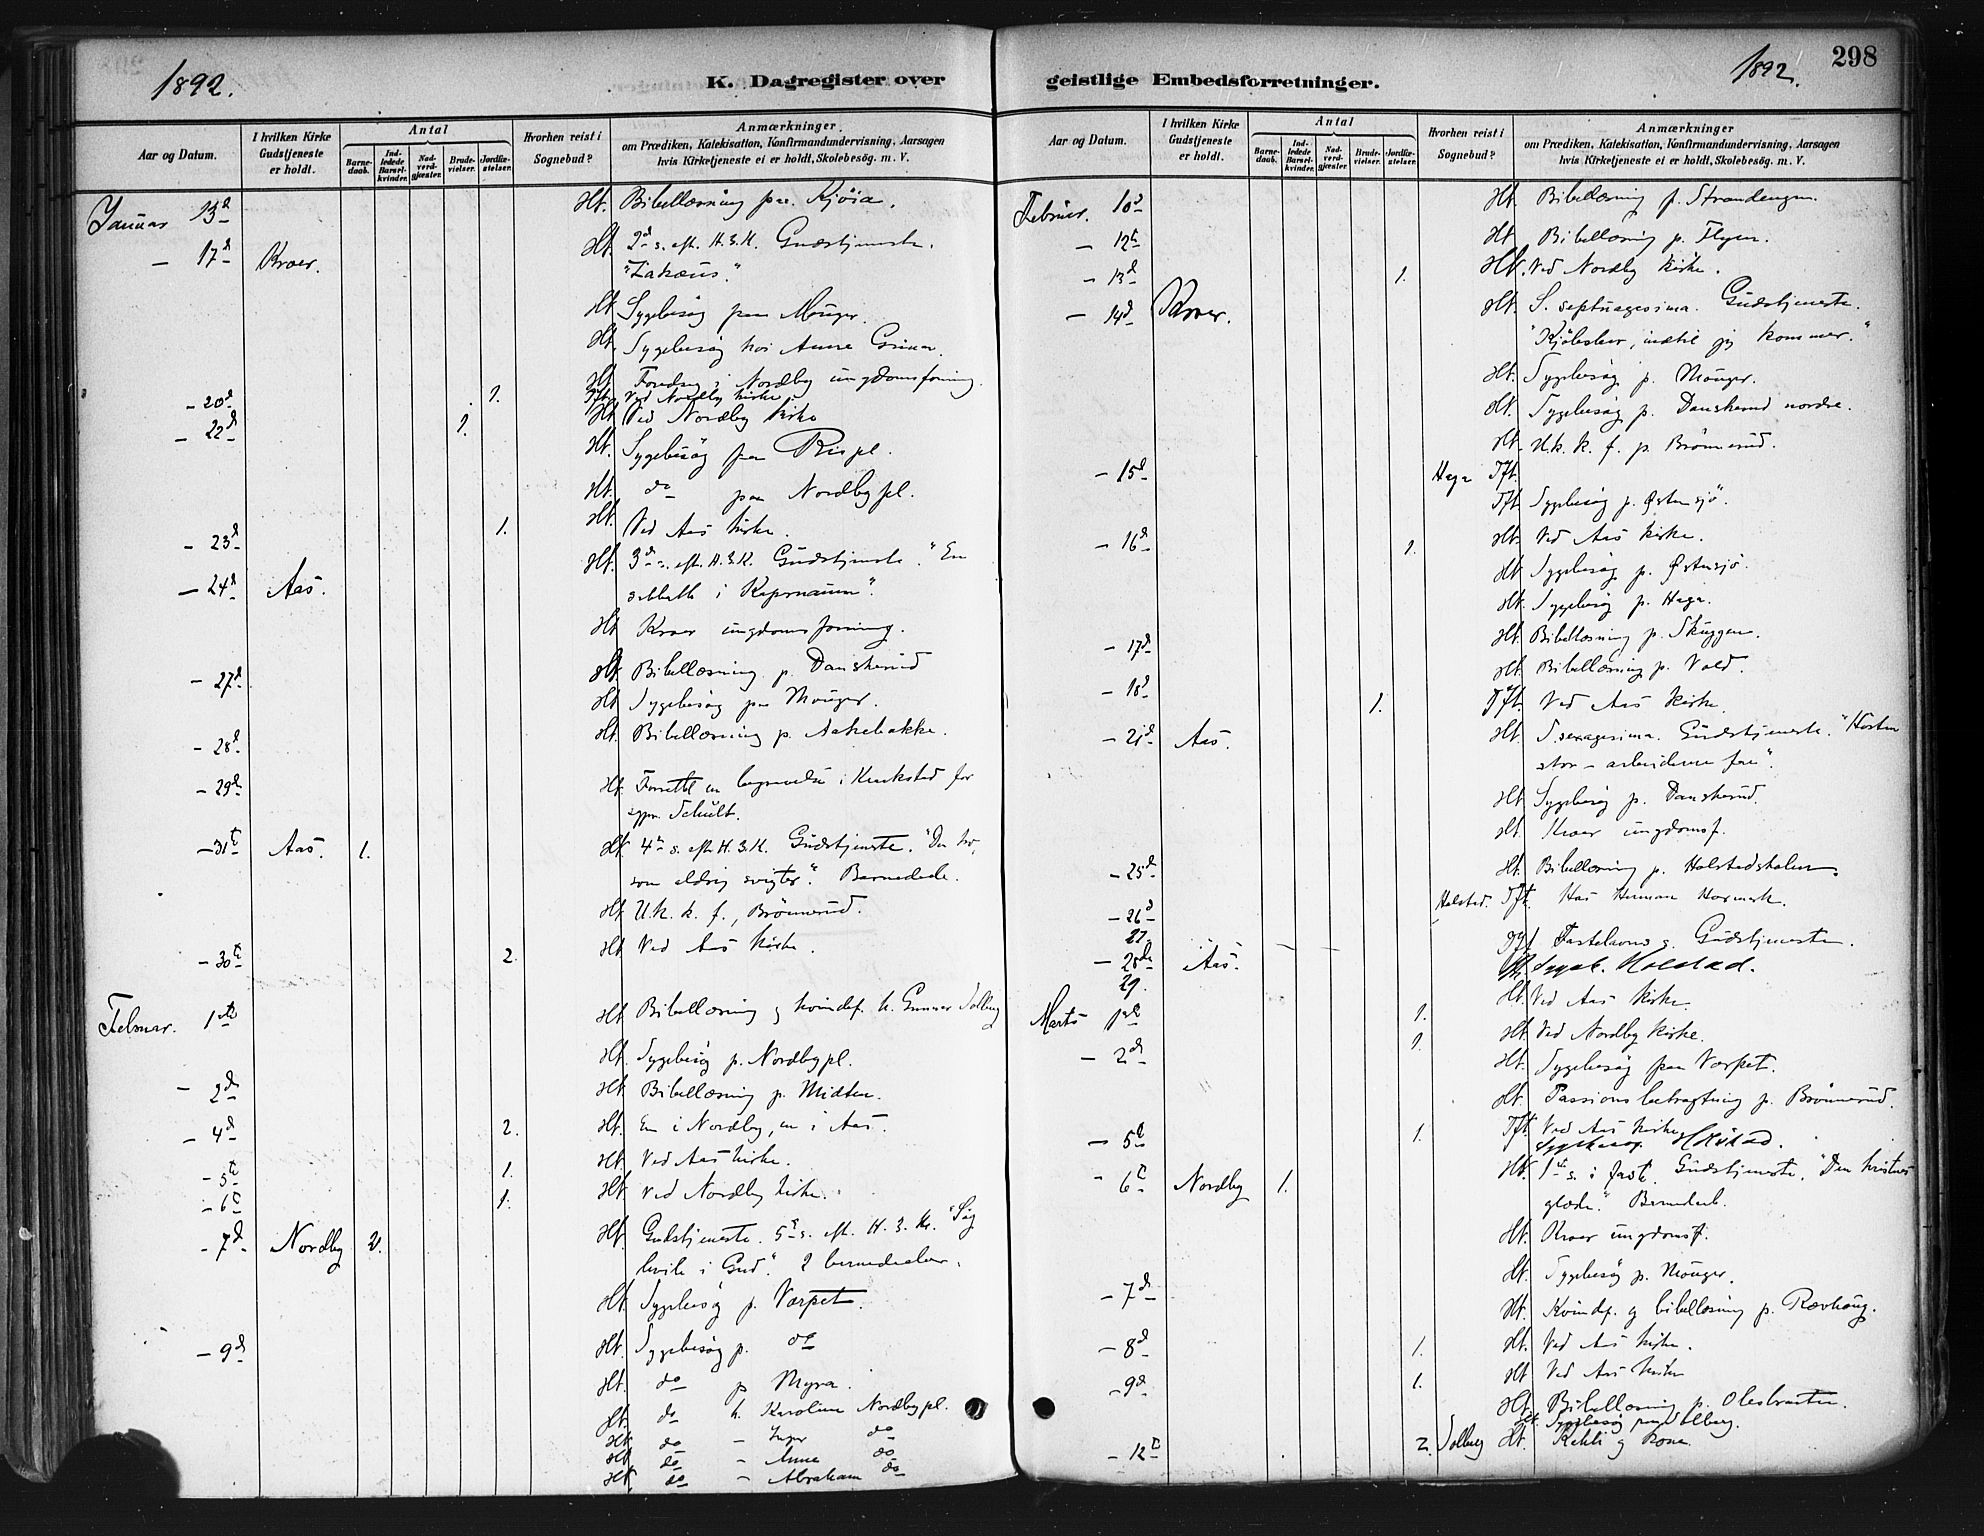 1892.
K. Dagregister over
Aar og Datum.
I hvilken Kirke Gudstjeneste er holdt.
Antal
Barnedaab.
Indledede Barselkvinder.
Nadverdgjæster.
Brudevielser.
Jordfæstelser.
Hvorhen reist i Sognebud?
Anmærkninger
om Prædiken, Katekisation, Konfirmandundervisning, Aarsagen
hvis Kirketjeneste ei er holdt, Skolebesøg. m. V.
Januar 13d Ht. Bibellæsning paa Kjøia.
- 17d Kroer. Ht. 2d s. eft. H.3.K. Gudstjeneste.
"Zakæus."
Ht. Sygebesøg paa Monger.
Ht. Sygebesøg hos Anne
Ht. Foredrag i Nordby ungdomsforening.
- 20d 1. Tft. Ved Nordby kirke
- 22d 1. Ht. Ved Nordby kirke
Ht. Sygebesøg paa Rispl.
Ht. do paa Nordbypl.
- 23d 1. Ht. Ved Aas kirke.
- 24d Aas. Ht. 3d s. eft. H.3.K. Gudstjeneste. "En
sabbath i Kapernaum".
Ht. Kroer ungdomsforening.
- 27d Ht. Bibellæsning p. Danskerud
Ht. Sygebesøg paa Monger.
- 28d Ht. Bibellæsning p. Askebakke.
- 29d Ht. Forrettet en begravelse i Kraakstad for
sgpr. Schult.
- 31te Aas. 1. Ht. 4de s. eft. H.3.K. Gudstjeneste. "Den
som aldrig svigter." Barnedaab.
Ht. U.k.k.f., Brönnerud.
- 30te 2. Ht. Ved Aas kirke.
Februar. 1ste Ht. Bibellæsning og kvindef. h. Gunnar Solberg
Ht. Sygebesøg p. Nordbypl.
- 2d Ht. Bibellæsning p. Midten.
- 4d 2. Ht. En i Nordby, en i Aas.
- 5te 1. Ht. Ved Aas kirke.
- 6te 1. Ht. Ved Nordby kirke.
- 7d Nordby 2. Ht. Gudstjeneste. 5te s. eft. H.3.K. "Søg
hvile i Gud". 2 barnedaaber.
Ht. Sygebesøg p. Vorpet.
- 9d Ht. Sygebesøg p. do
Ht. do p Myra.
Ht. do h. Karoline Nordbypl.
Ht. do - Inger do
Ht. do - Anna do
Ht. do - Abraham do
1892.
298
geistlige Embedsforretninger.
Aar og Datum.
I hvilken Kirke Gudstjeneste er holdt.
Antal
Barnedaab.
Indledede Barselkvinder.
Nadverdgjæster.
Brudevielser.
Jordfæstelser.
Hvorhen reist i Sognebud?
Anmærkninger
om Prædiken, Katekisation, Konfirmandundervisning, Aarsagen
hvis Kirketjeneste ei er holdt, Skolebesøg. m. V.
Februar. 10d Ht. Bibellæsning p. Strandengen.
- 12te Ht. Bibellæsning p. Flyen.
- 13d 1. Ht. Ved Nordby kirke.
- 14d Kroer. Ht. S. septuagesima. Gudstjeneste.
indtil jeg kommer."
Ht. Sygebesøg p. Monger.
Ht. Sygebesøg p. Danskerud nordre.
Ht. U.k.k.f. p. Brönnerud.
- 15d Haga Tft.
Tft. Sygebesøg p. Østensjö.
- 16d 1. Ht. Ved Aas kirke.
Ht. Sygebesøg p. Østensjö.
Ht. Sygebesøg p. Haga.
- 17d Ht. Bibellæsning p. Skuggen.
Ht. Bibellæsning p. Vold.
- 18d 1. Tft. Ved Aas kirke.
- 21d Aas. Ht. S. sexagesima. Gudstjeneste. "Høsten
stor - arbeiderne faa".
Ht. Sygebesøg p. Danskerud.
Ht. Kroer ungdomsf.
- 25d Ht. Bibellæsning p. Holstadskolen.
- 26d Holstad. Tft. Hos Herman
27
- 28de Aas. Tft Fastelavns s. Gudstjeneste.
29. Sygeb. Holstad.
Marts 1ste 1. Ht. Ved Aas kirke.
- 2de 1. Ht. Ved Nordby kirke.
Ht. Sygebesøg paa Vorpet.
Ht. Passionsbetragtning p. Brönnerud.
- 5te 1. Tft. Ved Aas kirke
Sygebesøg Holstad.
- 6te Nordby 1. Ht. 1ste s. i faste. Gudstjeneste. "Den kristnes
glæde." Barnedaab.
Ht. Kroer ungdomsf.
Ht. Sygebesøg p. Monger.
- 7de Ht. Kvindf. og bibellæsning p. Revhaug.
- 8d 1. Ht. Ved Aas kirke.
- 9d 1. Ht. Ved Aas kirke
Ht. Bibellæsning p. Olesbraaten.
Ht. Sygebesøg paa Solberg.
- 12te 2. Solberg Ht. og kone.